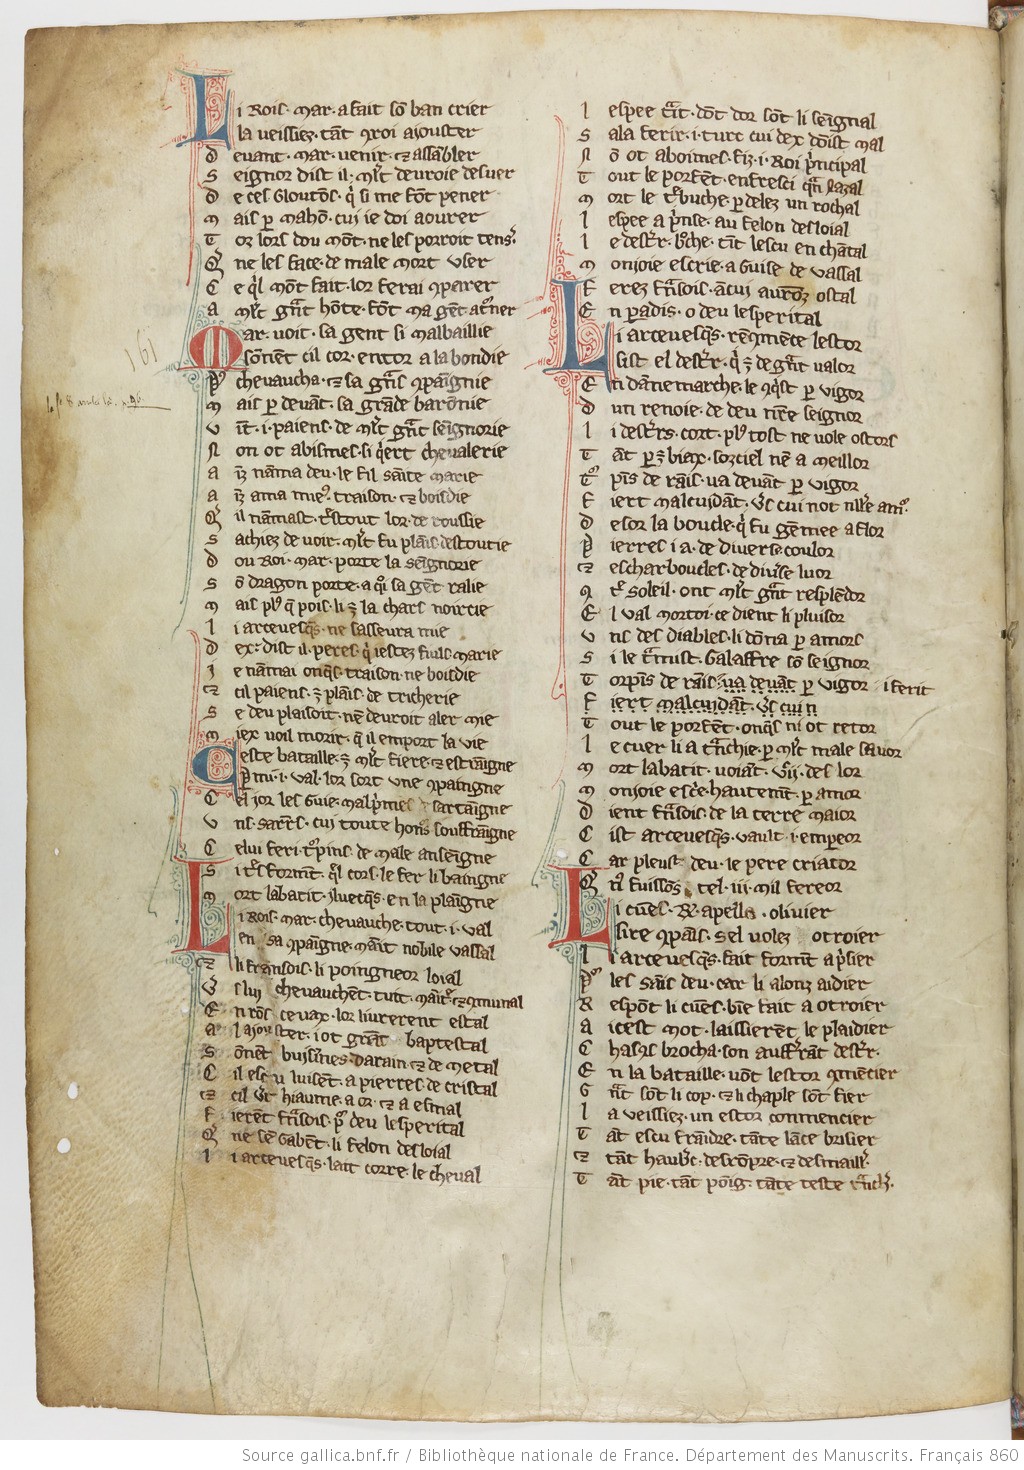 Li Rois. Mar. a fait sõ ban crier
la veissiez. tãt ꝯroi aiouster
Devant. Mar. venir. ⁊ assãbler
Seignor dist il. ml't devroie desver
De ces gloutõs. q' si me fõt pener
Mais p̱ mahõ. cui ie doi aourer
Toz lors dou mõt. ne les porroit tens'
Q̃ ne les face. de male mort vser
Ce q'l mõt fait. lor ferai ꝯparer
A ml't g̃nt hõte. fõt ma gẽt at'ner
Mar. voit. sa gent si malbaillie
Sõnẽt cil cor. entor a la bondie
P' chevaucha. ⁊ sa g̃ns ꝯpaignie
Mais p̱ devãt. sa grãde baronie
Vĩt. i. paiens. de ml't g̃nt seignorie
Non ot abismes. si q'ert chevalerie
Aĩz nãma deu. le fil sãite marie
Aĩz ama mie'. traison. ⁊ boisdie
Q̃il nãmast. t'stout lor. de roussie
Sachiez de voir. ml't fu plaĩs destoutie
Dou Roi. Mar. porte la seignorie
Sõ dragon porte. a q' sa gẽt ralie
Mais pl' q̃ pois. li ÷ la chars noircie
Li arcevesq̃s. ne sasseura mie
Dex. dist il. peres. q' iestez fiuls marie
Ie nãmai onq̃s. traison. ne boisdie
⁊ cil paiens. ÷ plaĩs. de tricherie
Se deu plaisoit. nẽ devroit aler mie
Miex voil morir. q̃ il emport la vie
Ceste bataille. ÷ ml't fiere. ⁊ estraigne
P̱mi. i. val. lor sort vne ꝯpaingne
Cel ior les guie. malp'mes sartaigne
Vns. sarr's. cui toute hon's souffraigne
Celui feri. t'pins. de male anseigne
Si t's formt̃. q'l cors. le fer li baingne
Mort labatit. illuecq̃s. en la plaigne
Li Rois. Mar. chevauche. tout. i. val
en sa ꝯpaigne. maĩt nobile vassal
⁊ li frãnsois. li poingneor loial
Vs lui chevauchẽt. tuit. maĩt'. ⁊ ꝯmunal
En rõs cevax. lor liurerent estal
Al aiouster. i ot grãt baptestal
Sõnẽt buisines. darain. ⁊ de metal
Cil escu luisẽt. a pierres de cristal
⁊ cil v't hiaume. a or. ⁊ a esmal
Fierẽt frãsois. p' deu lesperital
Q̃ ne sẽ gabẽt. li felon desloial
Li arcevesq̃s. lait corre. le cheval
Lespee t'it. dõt dor sõt li seignal
Sala ferir. i. turc cui dex dõist mal
Nõ ot aboimes. fiz. i. Roi p'ncipal
Tout le porfẽt. enfresci q'n
Mort le t'buche. p̱ delez un rochal
Lespee a p'nse. au felon desloial
Le dest'r. b'che. tĩt lescu en chãtal
Monjoie escrie. a guise de vassal
Ferez frãsois. ãcui aurõz ostal
En p̱adis. o deu lesperital
Li arcevesq̃s. reꝯmẽce lestor
Sist el dest'r. q' ÷ de g̃nt valor
En dãnemarche. le ꝯq'st p̱ vigor
Dun renoie. de deu nr̃e seignor
Li dest'rs. cort. pl' tost ne vole ostors
Tãt p̱ ÷ biax. soz ciel nẽ a meillor
T'pĩs de raĩs. va devãt p̱ vigor
Fiert malcuidãt. v's cui not nul'e am'
Desor la boucle. q' fu gẽmee a flor
Pierres i a. de diverse. coulor
⁊ escharboucles. de div'se luor
ꝯt' soleil. ont ml't g̃nt resplẽdor
El val mortoi. ce dient li pluisor
Vns des diables. li dõna p̱ amors
Si le t'mist. galaffre sõ seignor
Torpĩs de raĩs. va devãt p̱ vigor i ferit
Fiert malcuidãt. v's cui n
Tout le porfẽt. onq̃s ni ot retor
Le cuer li a t'nchie. p̱ ml't male savor
Mort labatit. voiãt. vij. des lor
Monjoie esc'e. hautemt̃. p̱ amor
Dient frãsois. de la terre maior
Cist arcevesq̃s. vault. i. emp̱eor
Car pleust deu. le pere criator
Q̃ n' fuissõs tel. iii. mil fereor
Li cuẽs. R. apella. olivier
Sire ꝯpaĩs. sel volez otroier
Li arcevesq̃s. fait formt̃ a p'sier
P' les saĩs deu. car li alonz aidier
Respõt li cuẽs. biẽ fait a otroier
A icest mot. laissierẽt. le plaidier
Chasc̃s brocha. son auff'rãt dest'r.
En la bataille. võt lestor ꝯmẽcier
G̃nt sõt li cop. ⁊ li chaple sõt fier
La veissiez. un estor conmencier
Tãt escu frãidre. tãte lãce brisier
⁊ tãt haub'c. desrõpre. ⁊ desmaill'
Tãt pie. tãt poĩg. tãte teste t'nch'.
161
Source gallica.bnf.fr / Bibliothèque nationale de France. Département des Manuscrits. Français 860